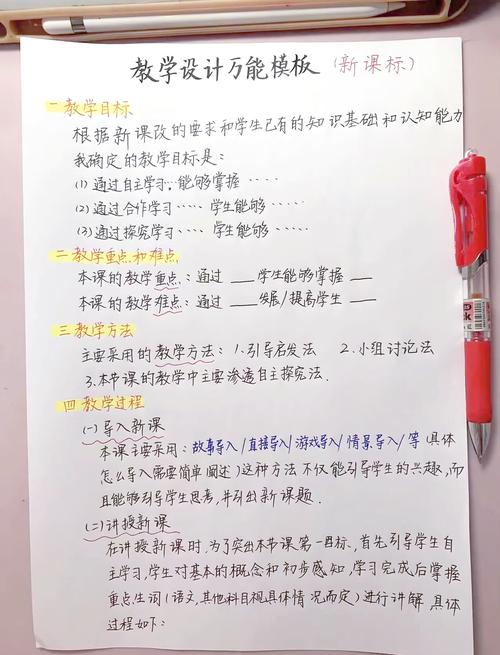 教学设计万能模板（新课标）
一 教学目标
根据新课改的要求和学生已有的知识基础和认知能力
我确定的教学目标是：
(1) 通过自主学习，能够掌握 ····
(2) 通过合作学习 ···· 学生能够 ····
(3) 通过探究学习 ···· 学生能够 ····
二 教学重点和难点
本课的教学重点：通过 __ 学生能够掌握 __
本课的教学难点：通过 __ 发展/提高学生 __
三 教学方法
主要采用的教学方法：1.引导启发法 2.小组讨论法
3.本节课的教学中主要渗透自主探究法.
四 教学过程
(一) 导入新课
本课主要采用：故事导入/直接导入/游戏导入/情景导入/等（具体
怎么导入需要简单阐述）这种方法不仅能引导学生的兴趣，而
且能够引导学生思考，并引出新课题.
(二) 讲授新课
在讲授新课时，为了突出本节课第一目标，首先引导学生自
主学习，学生对基本的概念和初步感知，学习完成后掌握
重点生词（语文，其他科目视具体情况而定）进行讲解，具体
过程如下：